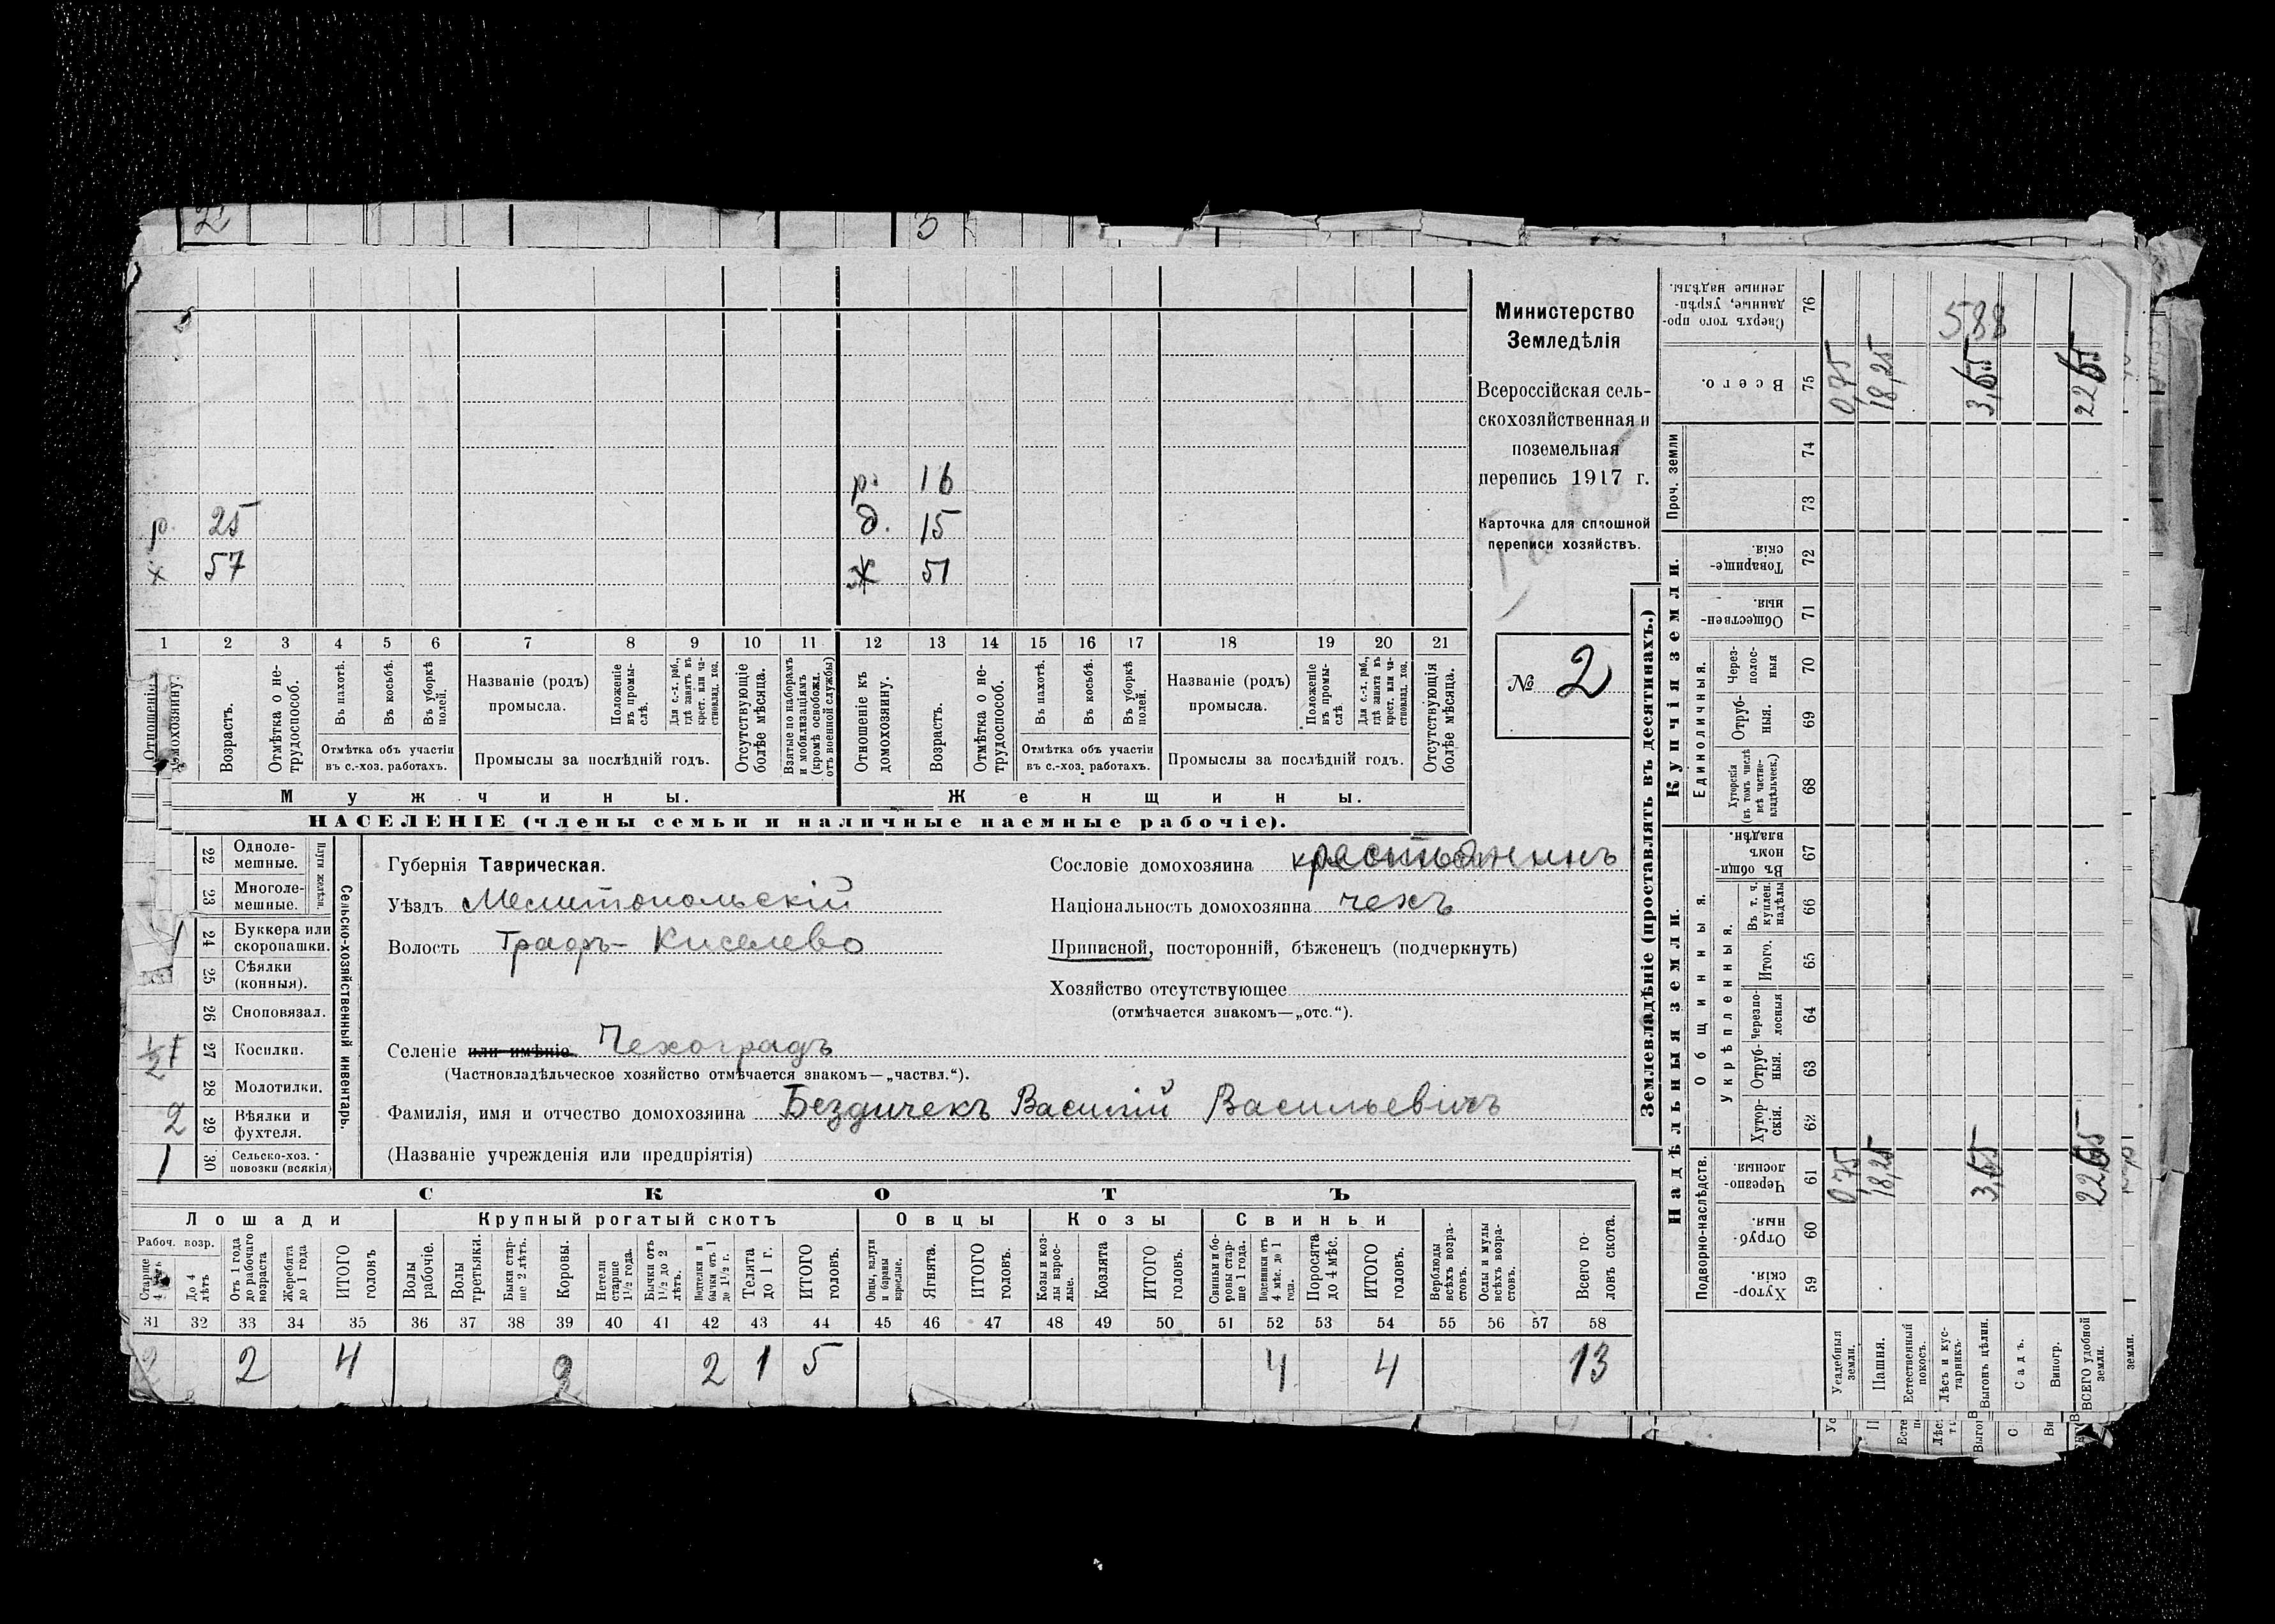 2
3
р. 16
р. 25
д. 15
х 57
ж 51
1 2 3 4 5 6 7 8 9 10 11 12 13 14 15 16 17 18 19 20 21
Отношеніе къ домохозяину.
Возрастъ.
Отмѣтка о не-
трудоспособ.
Въ пахотѣ.
Въ косьбѣ.
Въ уборкѣ
полей.
Отмѣтка объ участіи
въ с.-хоз. работахъ.
Названіе (родъ)
промысла.
Положеніе
въ промы-
слѣ.
Для с.-х. раб.,
гдѣ занятъ въ
крест. или ча-
стновлад. хоз.
Промыслы за послѣдній годъ.
Отсутствующіе
болѣе мѣсяца.
Взятые по наборамъ
и мобилизаціямъ
(кромѣ освобожд.
отъ военной службы)
Отношеніе къ
домохозяину.
Возрастъ.
Отмѣтка о не-
трудоспособ.
Въ пахотѣ.
Въ косьбѣ.
Въ уборкѣ
полей.
Отмѣтка объ участіи
въ с.-хоз. работахъ.
Названіе (родъ)
промысла.
Положеніе
въ промы-
слѣ
Для с.-х. раб.,
гдѣ занята въ
крест. или ча-
стновлад. хоз.
Промыслы за послѣдній годъ.
Отсутствующія
болѣе мѣсяца.
Мужчины.
Женщины.
НАСЕЛЕНІЕ (члены семьи и наличные наемные рабочіе).
Министерство
Земледѣлія
Всероссійская сель-
скохозяйственная и
поземельная
перепись 1917 г.
Карточка для сплошной
переписи хозяйствъ.
№ 2
Сельско-хозяйственный инвентарь.
Плуги желѣзн.
22 Одноле-
мешные.
23 Многоле-
мешные.
1 24 Буккера или
скоропашки.
25 Сѣялки
(конныя).
26 Сноповязал.
1/2 27 Косилки.
28 Молотилки.
2 29 Вѣялки и
фухтеля.
1 30 Сельско-хоз.
повозки (всякія)
Губернія Таврическая.
Уѣздъ Мелитопольскій
Волость Графъ-Киселево
Селеніе или имѣніе Чехоградъ
(Частновладѣльческое хозяйство отмѣчается знакомъ—„частвл.“).
Фамилія, имя и отчество домохозяина Бездичекъ Василій Васильевичъ
(Названіе учрежденія или предпріятія)
Сословіе домохозяина крестьянинъ
Національность домохозяина чехъ
Приписной, посторонній, бѣженецъ (подчеркнуть)
Хозяйство отсутствующее
(отмѣчается знакомъ—„отс.“).
СКОТЪ
Лошади
Крупный рогатый скотъ
Овцы
Козы
Свиньи
Рабоч. возр.
Старше
4 лѣтъ
До 4
лѣтъ
Отъ 1 года
до рабочаго
возраста
Жеребята
до 1 года
ИТОГО
головъ
Волы
рабочіе.
Волы
третьяки.
Быки стар-
ше 2 лѣтъ.
Коровы.
Нетели
старше
1½ года.
Бычки отъ
1½ до 2
лѣтъ.
Подтелки и
бычки отъ 1
до 1½ г.
Телята
до 1 г.
ИТОГО
головъ.
Овцы, валухи
и бараны
взрослые.
Ягнята.
ИТОГО
головъ.
Козы и коз-
лы взрос-
лые.
Козлята
ИТОГО
головъ.
Свиньи и бо-
ровы стар-
ше 1 года.
Подсвинки отъ
4 мѣс. до 1
года.
Поросята
до 4 мѣс.
ИТОГО
головъ.
Верблюды
всѣхъ возра-
стовъ.
Ослы и мулы
всѣхъ возра-
стовъ.
Всего го-
ловъ скота.
31 32 33 34 35 36 37 38 39 40 41 42 43 44 45 46 47 48 49 50 51 52 53 54 55 56 57 58
2 2 4 2 2 1 5 4 4 13
Землевладѣніе (проставлять въ десятинахъ.)
Надѣльныя земли.
Купчія земли.
Проч. земли
Подворно-наслѣдств.
Общинныя.
Укрѣпленныя.
Единоличныя.
Хутор-
скія.
59
Отруб-
ныя.
60
Черезпо-
лосныя.
61
Хутор-
скія.
62
Отруб-
ныя.
63
Черезпо-
лосныя
64
Итого.
65
Въ т. ч.
куплен.
надѣлы
66
Въ общи
номъ
владѣн.
67
Хуторскія
(въ томъ числѣ
всѣ частно-
владѣльческ.)
68
Отруб-
ныя.
69
Через-
полос-
ныя
70
Обществен-
ныя.
71
Товарище-
скія.
72
73
74
Всего.
75
Сверхъ того про-
данные, укрѣп-
ленные надѣлы.
76
588
Усадебныя
земли.
0,75 0,75
Пашня.
18,25 18,25
Естественный
покосъ.
Лѣсъ и кус-
тарникъ.
Выгонъ цѣлин.
3,65 3,65
Садъ.
Виногр.
ВСЕГО удобной
земли.
22,65 22,65
земли.